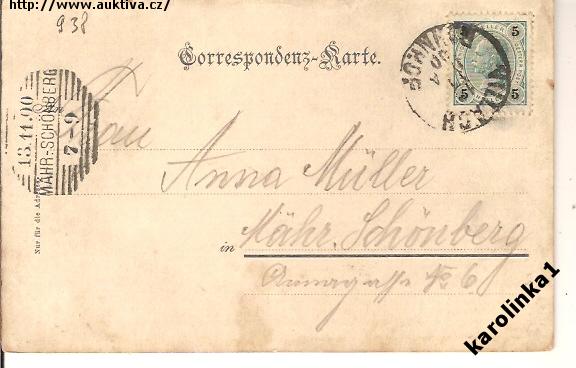 http://www.auktiva.cz/
938
Correspondenz-Karte.
5 5
5 5
13.11.00
MÄHR.-SCHÖNBERG
7-9
An
Frau
Anna Müller
in Mähr. Schönberg
Annagasse No 6
Nur für die Adresse
karolinka1